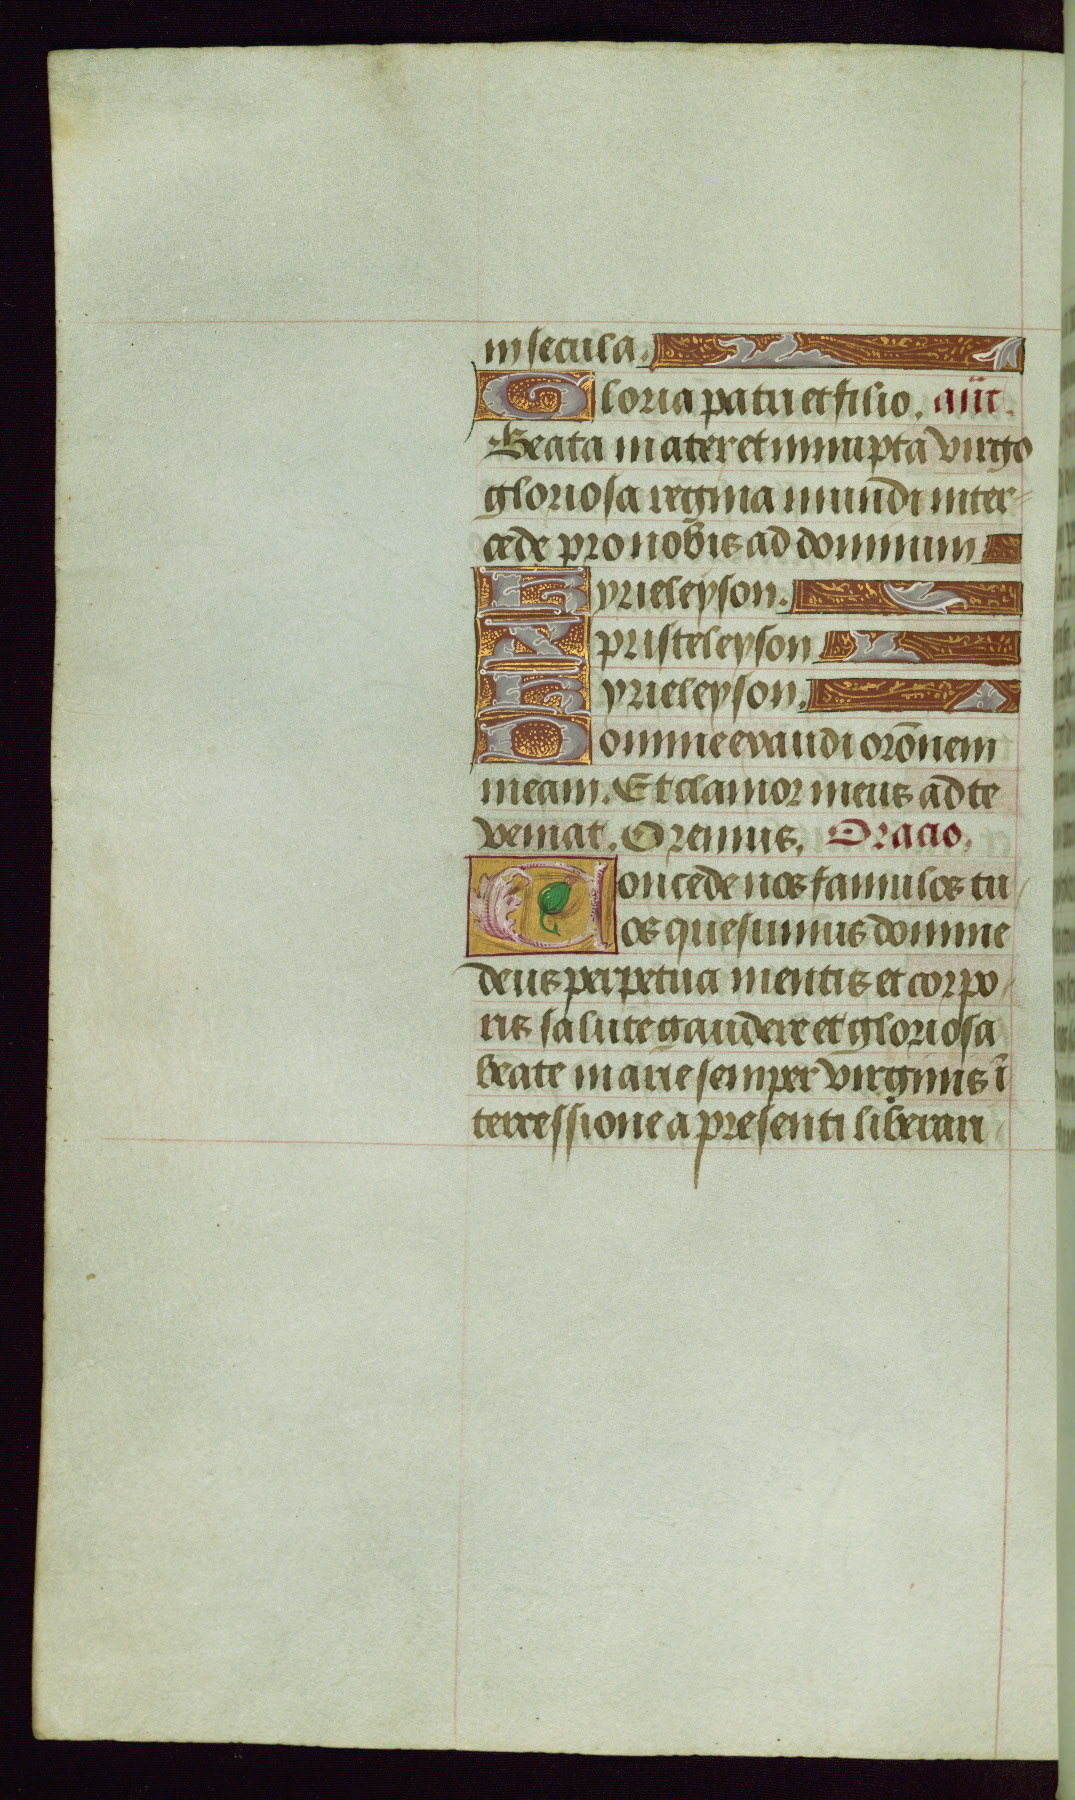 in secula.
Gloria patri et filio. añt.
Beata mater et innupta virgo
gloriosa regina mundi inter-
cede pro nobis ad dominum
Kyrieleyson.
Xpristeleyson
Kyrieleyson.
Domine exaudi orõnem
meam. Et clamor meus ad te
veniat. Oremus. Oracio.
Concede nos famulos tu
os quesumus domine
deus perpetua mentis et corpo-
ris salute gaudere et gloriosa
beate marie semper virginis ĩ
terressione a presenti liberari